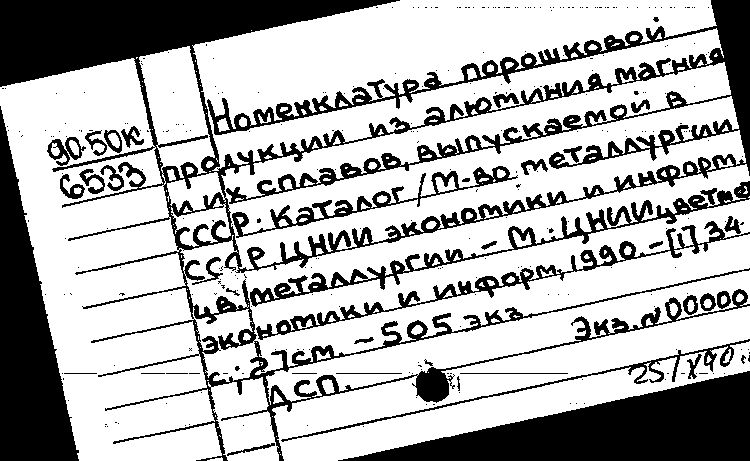 90-50к
6533
Номенклатура порошковой
продукции из алюминия, магния
и их сплавов, выпускаемой в
СССР: Каталог / М-во металлургии
СССР, ЦНИИ экономики и информ.
цв. металлургии. - М.: ЦНИИцветмет
экономики и информ, 1990. - [1], 34
с.; 27см. - 505 экз.
Экз. №00000
ДСП.
25/X90.